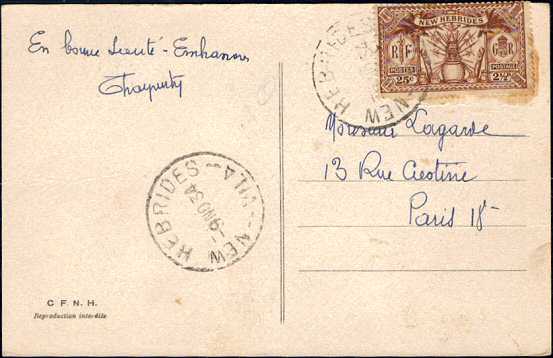 En bonne santé - Embrassons
NEW HEBRIDES
RF
GR
POSTES
POSTAGE
25c
2½d
NEW HEBRIDES
Monsieur Lagarde
13 Rue
Paris 18e
VILA - NEW HEBRIDES
C F N. H.
Reproduction interdite